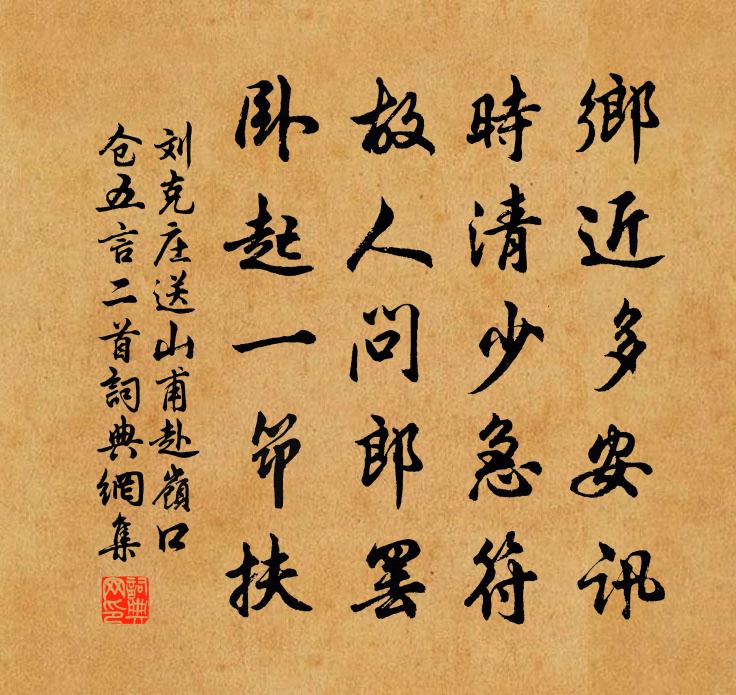 鄉近多安訊
時清少急符
故人問郎罢
卧起一笻扶
刘克庄送山甫赴嶺口
仓五言二首詞典網集
詞典
网印